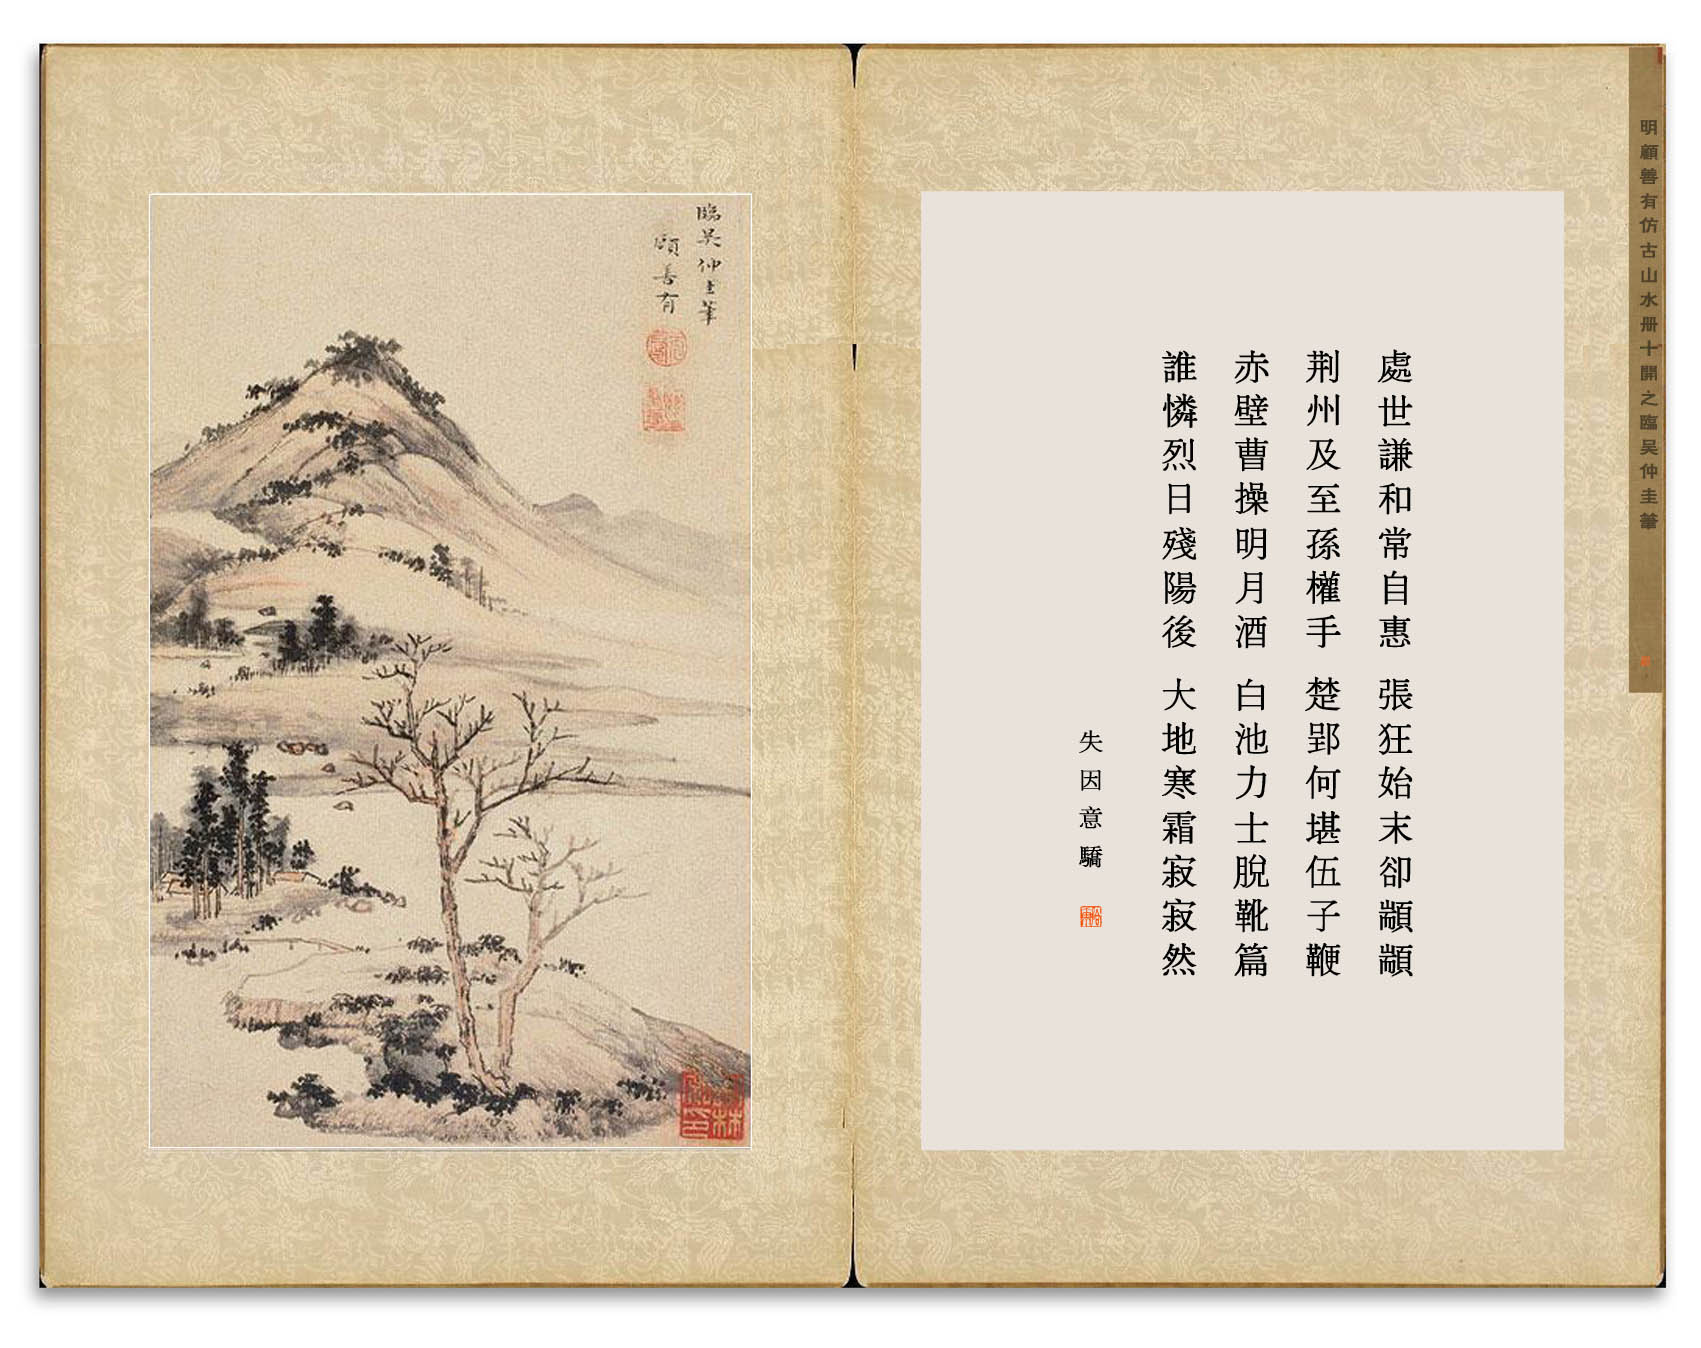 明顧善有仿古山水册十開之臨吴仲圭筆
處世謙和常自惠 張狂始末卻顓顓
荆州及至孫權手 楚郢何堪伍子鞭
赤壁曹操明月酒 白池力士脫靴篇
誰憐烈日殘陽後 大地寒霜寂寂然
失因意驕
臨吴仲圭筆
顧善有